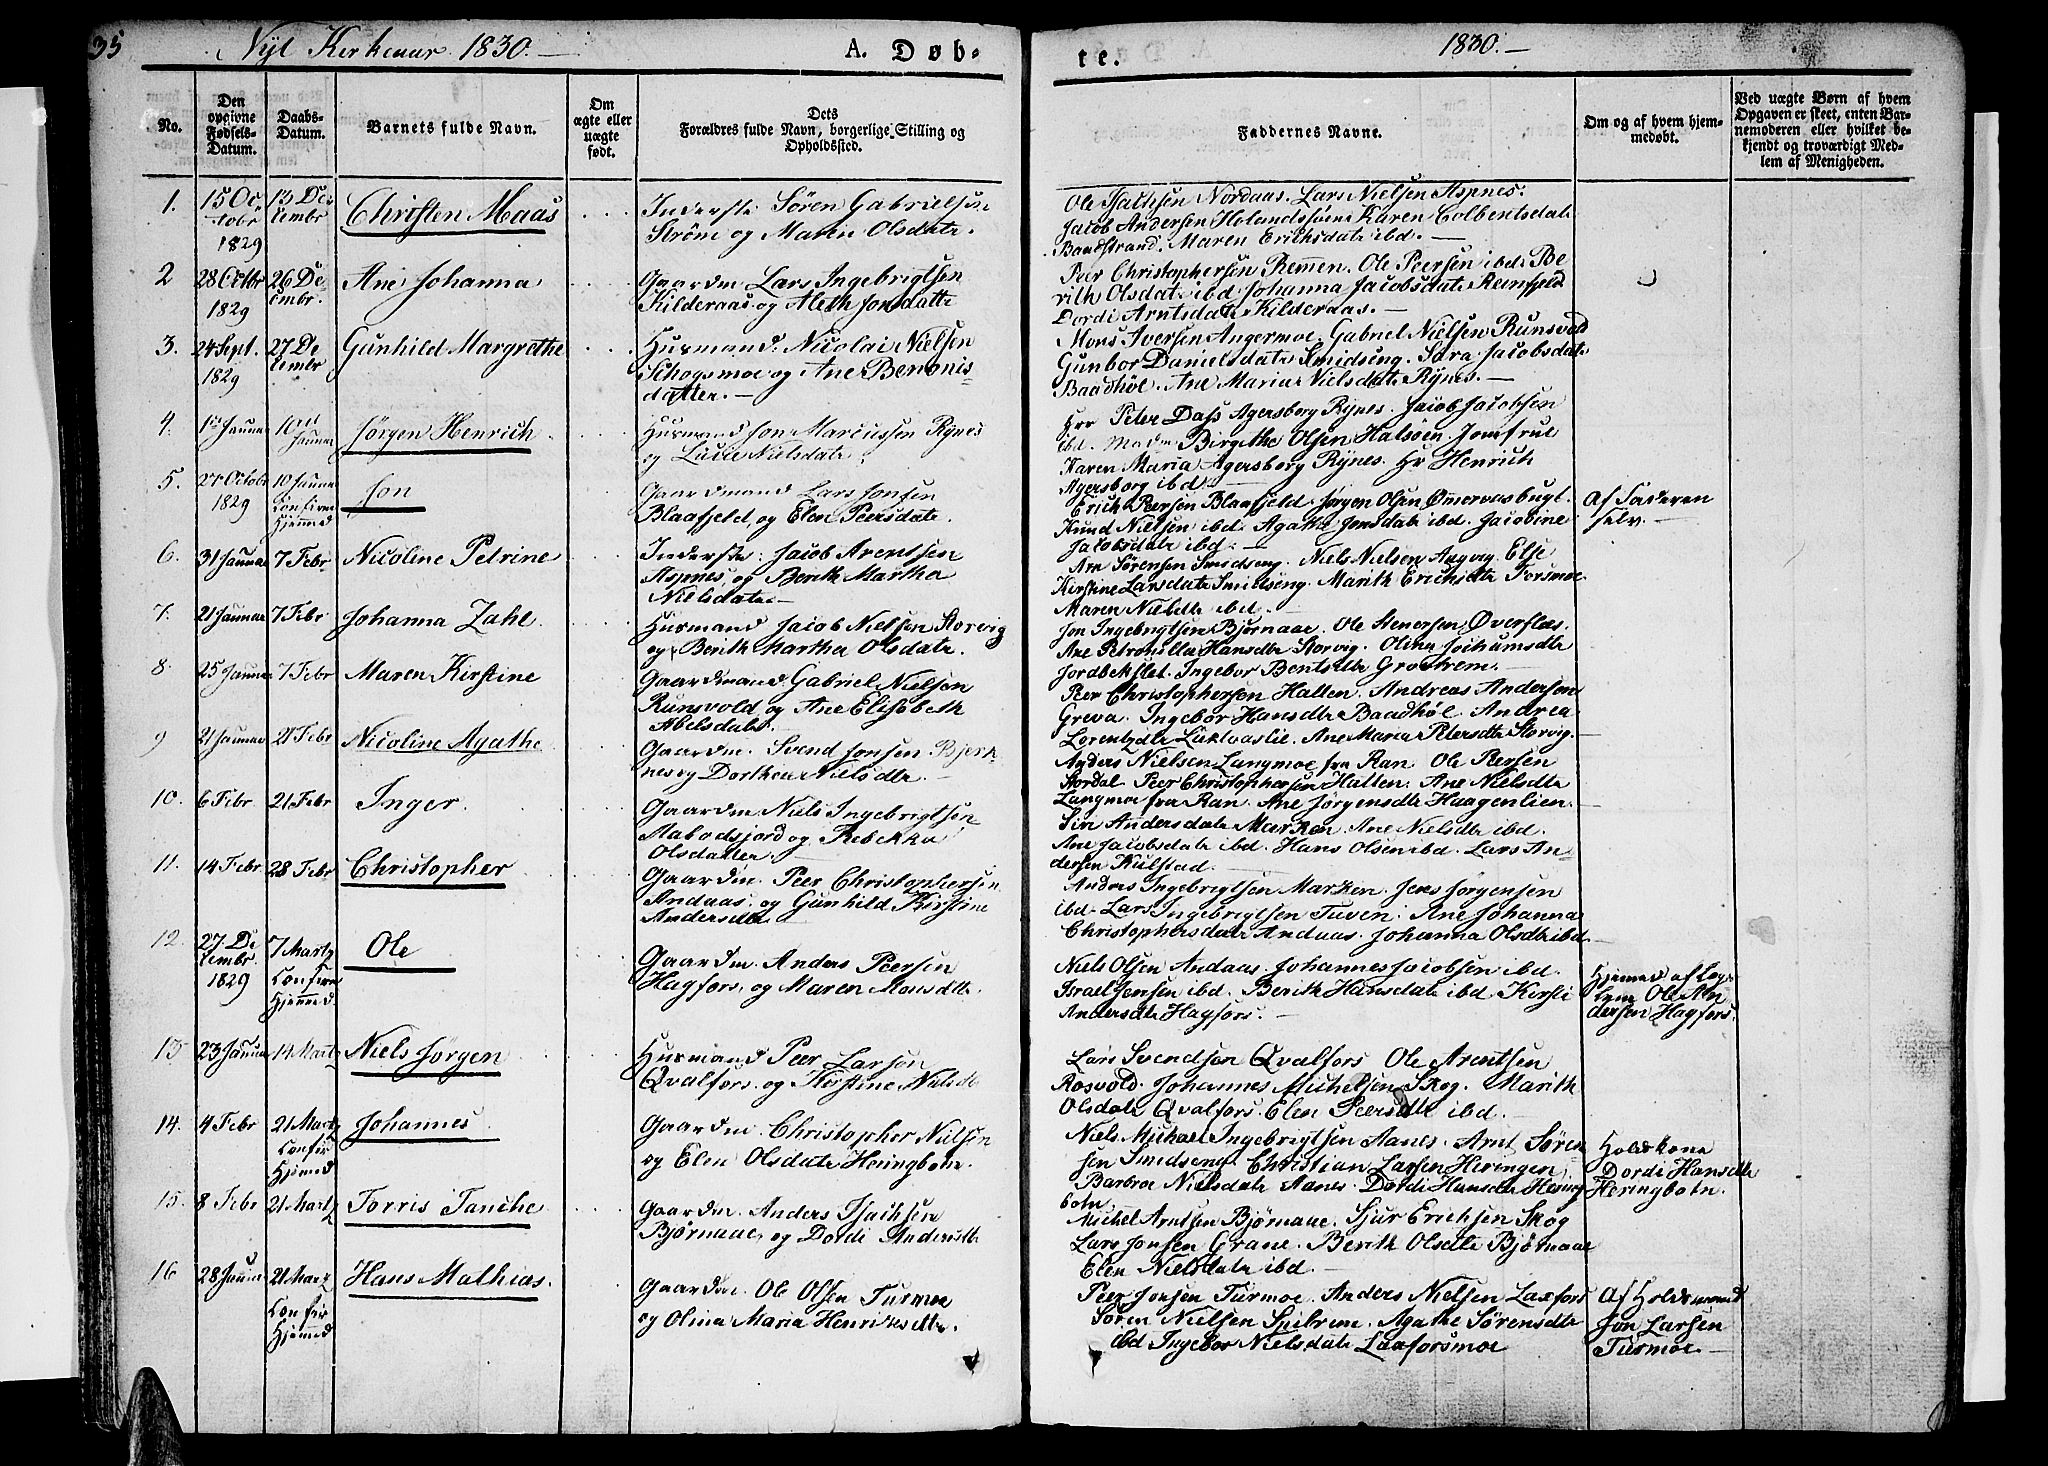 35
Nyt Kirkeaar 1830.
A. Døb-
te.
1830.
No.
Den opgivne Fødsels-Datum.
Daabs-Datum.
Barnets fulde Navn.
Om ægte eller uægte født.
Dets Forældres fulde Navn, borgerlige Stilling og Opholdssted.
Faddernes Navne.
Om og af hvem hjem-medøbt.
Ved uægte Børn af hvem Opgaven er skeet, enten Bar-nemoderen eller hvilket be-kjendt og troværdigt Med-lem af Menigheden.
1. 15 Oc tobr 1829 13 De cembr Christen Maas
Inderste Søren Gabrielsen
Strøm og Maren Olsdatr.
Ole Isachsen Nordaas. Lars Nielsen Aspnes.
Jacob Andersen Holandsøen Karen Colbentsdatr
Baadstrand. Maren Erichsdatr ibd.
2 28 Octbr 1829 26 De cembr. Ane Johanna
Gaardm Lars Ingebrigtsen
Kilderaas og Aleth Jonsdatte
Peer Christophersen Remen. Ole Peersen ibd. Be
rith Olsdatr ibd Johanna Jacobsdatr Reinfjeld
Dordi Arntsdatr Kilderaas.
3. 24 Sept. 1829 27 De cembr Gunhild Margrethe
Husmand. Nicolai Nielsen
Schogsmoe og Ane Benonis
datter.
Mons Iversen Angermoe. Gabriel Nielsen Runsvold
Gunbor Danielsdatr Smidseng. Sara Jacobsdatr
Baadhøl. Ane Maria Nielsdatr Rynes.
4. Januar Januar Jørgen Henrich
Husmand Jon Marcussen Rynes
og Lucie Nielsdatr
Hrr Peter Dass Agersborg Rynes. Jacob Jacobsen
ibd. Mad Birgithe Olsen Halsøen. Jomfrue
Karen Maria Agersborg Rynes. Hr Henrich
Agersborg ibd.
5. 27 Octobr 1829 10 Januar Confirm Hjemmed Jon
Gaardmand Lars Jonsen
Blaafjeld, og Elen Peersdatr.
Erich Peersen Blaafjeld Jørgen Olsen Ømervasbugt.
Knud Nielsen ibd. Agathe Jonsdatr ibd. Jacobine
Jacobsdatr ibd.
Af Faderen
selv.
6. 31 Januar 7 Febr Nicoline Petrine
Inderste Jacob Arentsen
Aspnes, og Berith Martha
Nielsdatr.
Arn Sørensen Smidseng. Niels Nielsen Aagvig Else
Kirstine Larsdatr Smidseng. Marith Erichsdtr Forsmoe
Maren Nielsdtr ibd.
7. 21 Januar 7 Febr Johanna Zahl
Husmand Jacob Nielsen Storvig
og Berith Martha Olsdatr.
Jon Ingebrigtsen Bjørnaae. Ole Stenersen Øverflæs.
Ane Petronella Hansdtr Storvig. Olina Jochumsdtr
Jordbekslet. Ingebor Bentsdtr Grostrem.
8. 25 Januar 7 Febr Maren Kirstine
Gaardmand Gabriel Nielsen
Runsvold og Ane Elisabeth
Abelsdatr.
Peer Christophersen Halten. Andreas Andersen
Greva. Ingebor Hansdtr Baadhøl. Andrea
Lorentzdtr Luktvaslie. Ane Maria Petersdtr Storvig.
9 21 Januar 21 Febr Nicoline Agathe
Gaardm Svend Jonsen Bjerk
nes og Dorthea Nielsdtr.
Anders Nielsen Langmoe fra Ran. Ole Peersen
Stordal Peer Christophersen Halten. Ane Nielsdtr
Langmoe fra Ran. Ane Jørgensdtr Haagenlien.
10. 6 Febr 21 Febr Inger.
Gaardm Niels Ingebrigtsen
og Rebekka
Olsdatter.
Siri Andersdatr Marken. Ane Nielsdtr ibd.
Ane Jacobsdatr ibd. Hans Olsen ibd. Lars An
dersen Kulstad.
11. 14 Febr 28 Febr Christopher
Gaardm. Peer Christophersen
Andaas. og Gunhild Kirstine
Andersdtr
Anders Ingebrigtsen Marken. Jens Jørgensen
ibd. Lars Ingebrigtsen Tuven. Ane Johanna
Christophersdatr Andaas. Johanna Olsdtr ibd.
12. 27 De cembr. 1829 7 Martz Confirm Hjemmed Ole
Gaardm. Anders Peersen
Hagfors, og Maren Monsdtr.
Niels Olsen Andaas. Johannes Jacobsen ibd.
Israel Jensen ibd. Berith Hansdatr ibd. Kirsti
Andersdtr Hagfors.
Hjemmed af Leg
Ole An
dersen Hagfors.
13 23 Januar 14 Martz Niels Jørgen
Husmand Peer Larsen
Qvalfors. og Kirstine Nielsd
Lars Svendsen Qvalfors Ole Arentsen
Rosvold. Johannes Michelsen Skog. Marith
Olsdatr Qvalfors. Elen Peersdtr ibd.
14. 4 Febr 21 Martz Confir Hjemmed Johannes
Gaardm. Christopher Nielsen
og Elen Olsdatr Heringbotn.
Niels Michael Ingebrigtsen Aanes. Arnt Søren
sen Smidseng. Christian Larsen Heringen.
Barbroe Nielsdatr Aanes. Dordi Hansdtr Hering
botn.
Holdskone
Dordi Hansdtr
Heringbotn.
15. 8 Febr 21 Martz Torris Tanche
Gaardm. Anders Isachsen
Bjørnaae, og Dordi Andersdtr
Michel Arntsen Bjørnaae. Sjur Erichsen Skog
Lars Jonsen Grane. Berith Olsdtr Bjørnaae
Elen Nielsdatr ibd.
16 28 Januar 21 Martz Confir Hjemmed Hans Mathias.
Gaardm. Ole Olsen Turmoe
og Olina Maria Henriksdtr.
Peer Jonsen Turmoe. Anders Nielsen Laxfors
Søren Nielsen Agathe Sørensdtr
ibd Ingebor Nielsdatr Laxforsmoe
Af Holdsmand
Jon Larsen
Turmoe.